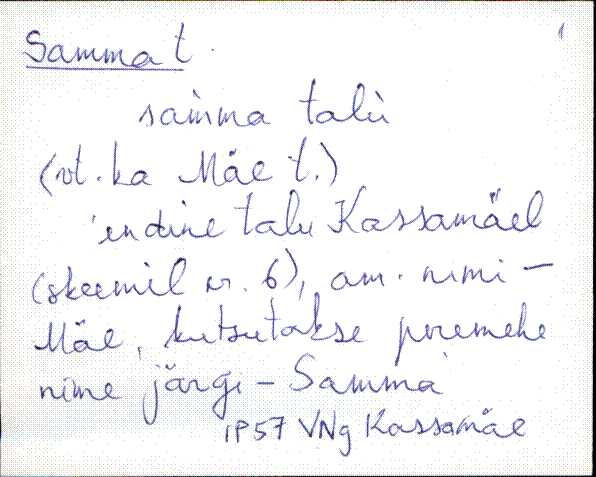 Samma t.
1
samma talu
(vt. ka Mäe t.)
endine talu Kassamäel
(skeemil nr. 6), am. nimi -
Mäe, kutsutakse peremehe
nime järgi - Samma
IP57 VNg Kassamäe